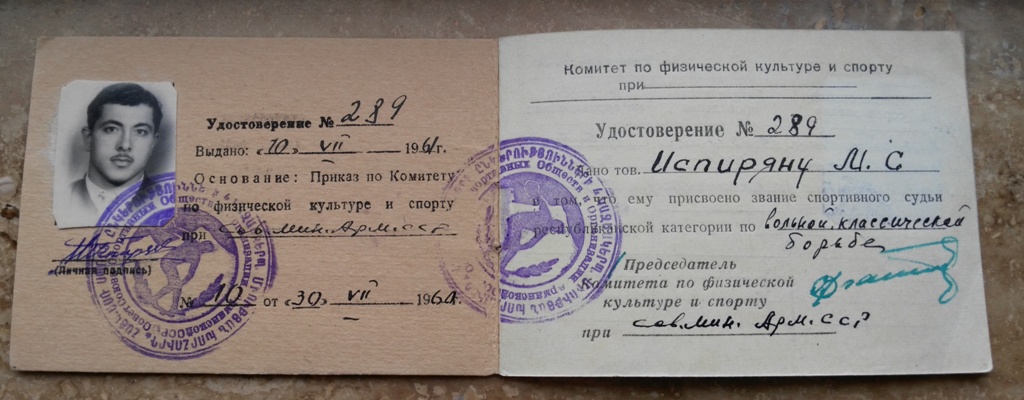 Удостоверение № 289
Выдано: «10» VII 1961г.
Основание: Приказ по Комитету
по физической культуре и спорту
при Сов. Мин. Арм. ССР
(Личная подпись)
№ 10 от «30» VII 1961
Комитет по физической культуре и спорту
при
Удостоверение № 289
Дано тов. Испиряну М. С
в том, что ему присвоено звание спортивного судьи
республиканской категории по вольной, классической
борьбе
Председатель
Комитета по физической
культуре и спорту
при Сов. Мин. Арм. ССР